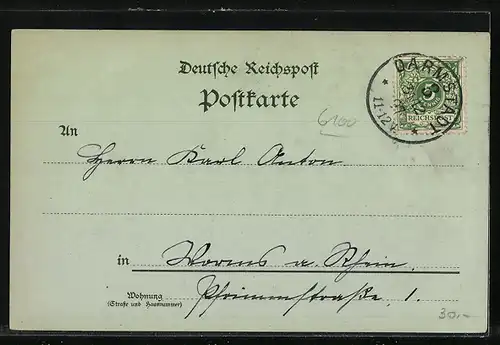 Deutsche Reichspost
Postkarte
DARMSTADT
11-12V
5
REICHSPOST
6100
An
Herrn Karl Anton
in Worms a. Rhein.
Wohnung
(Straße und Hausnummer)
Pfrimmstraße, 1.
30.-